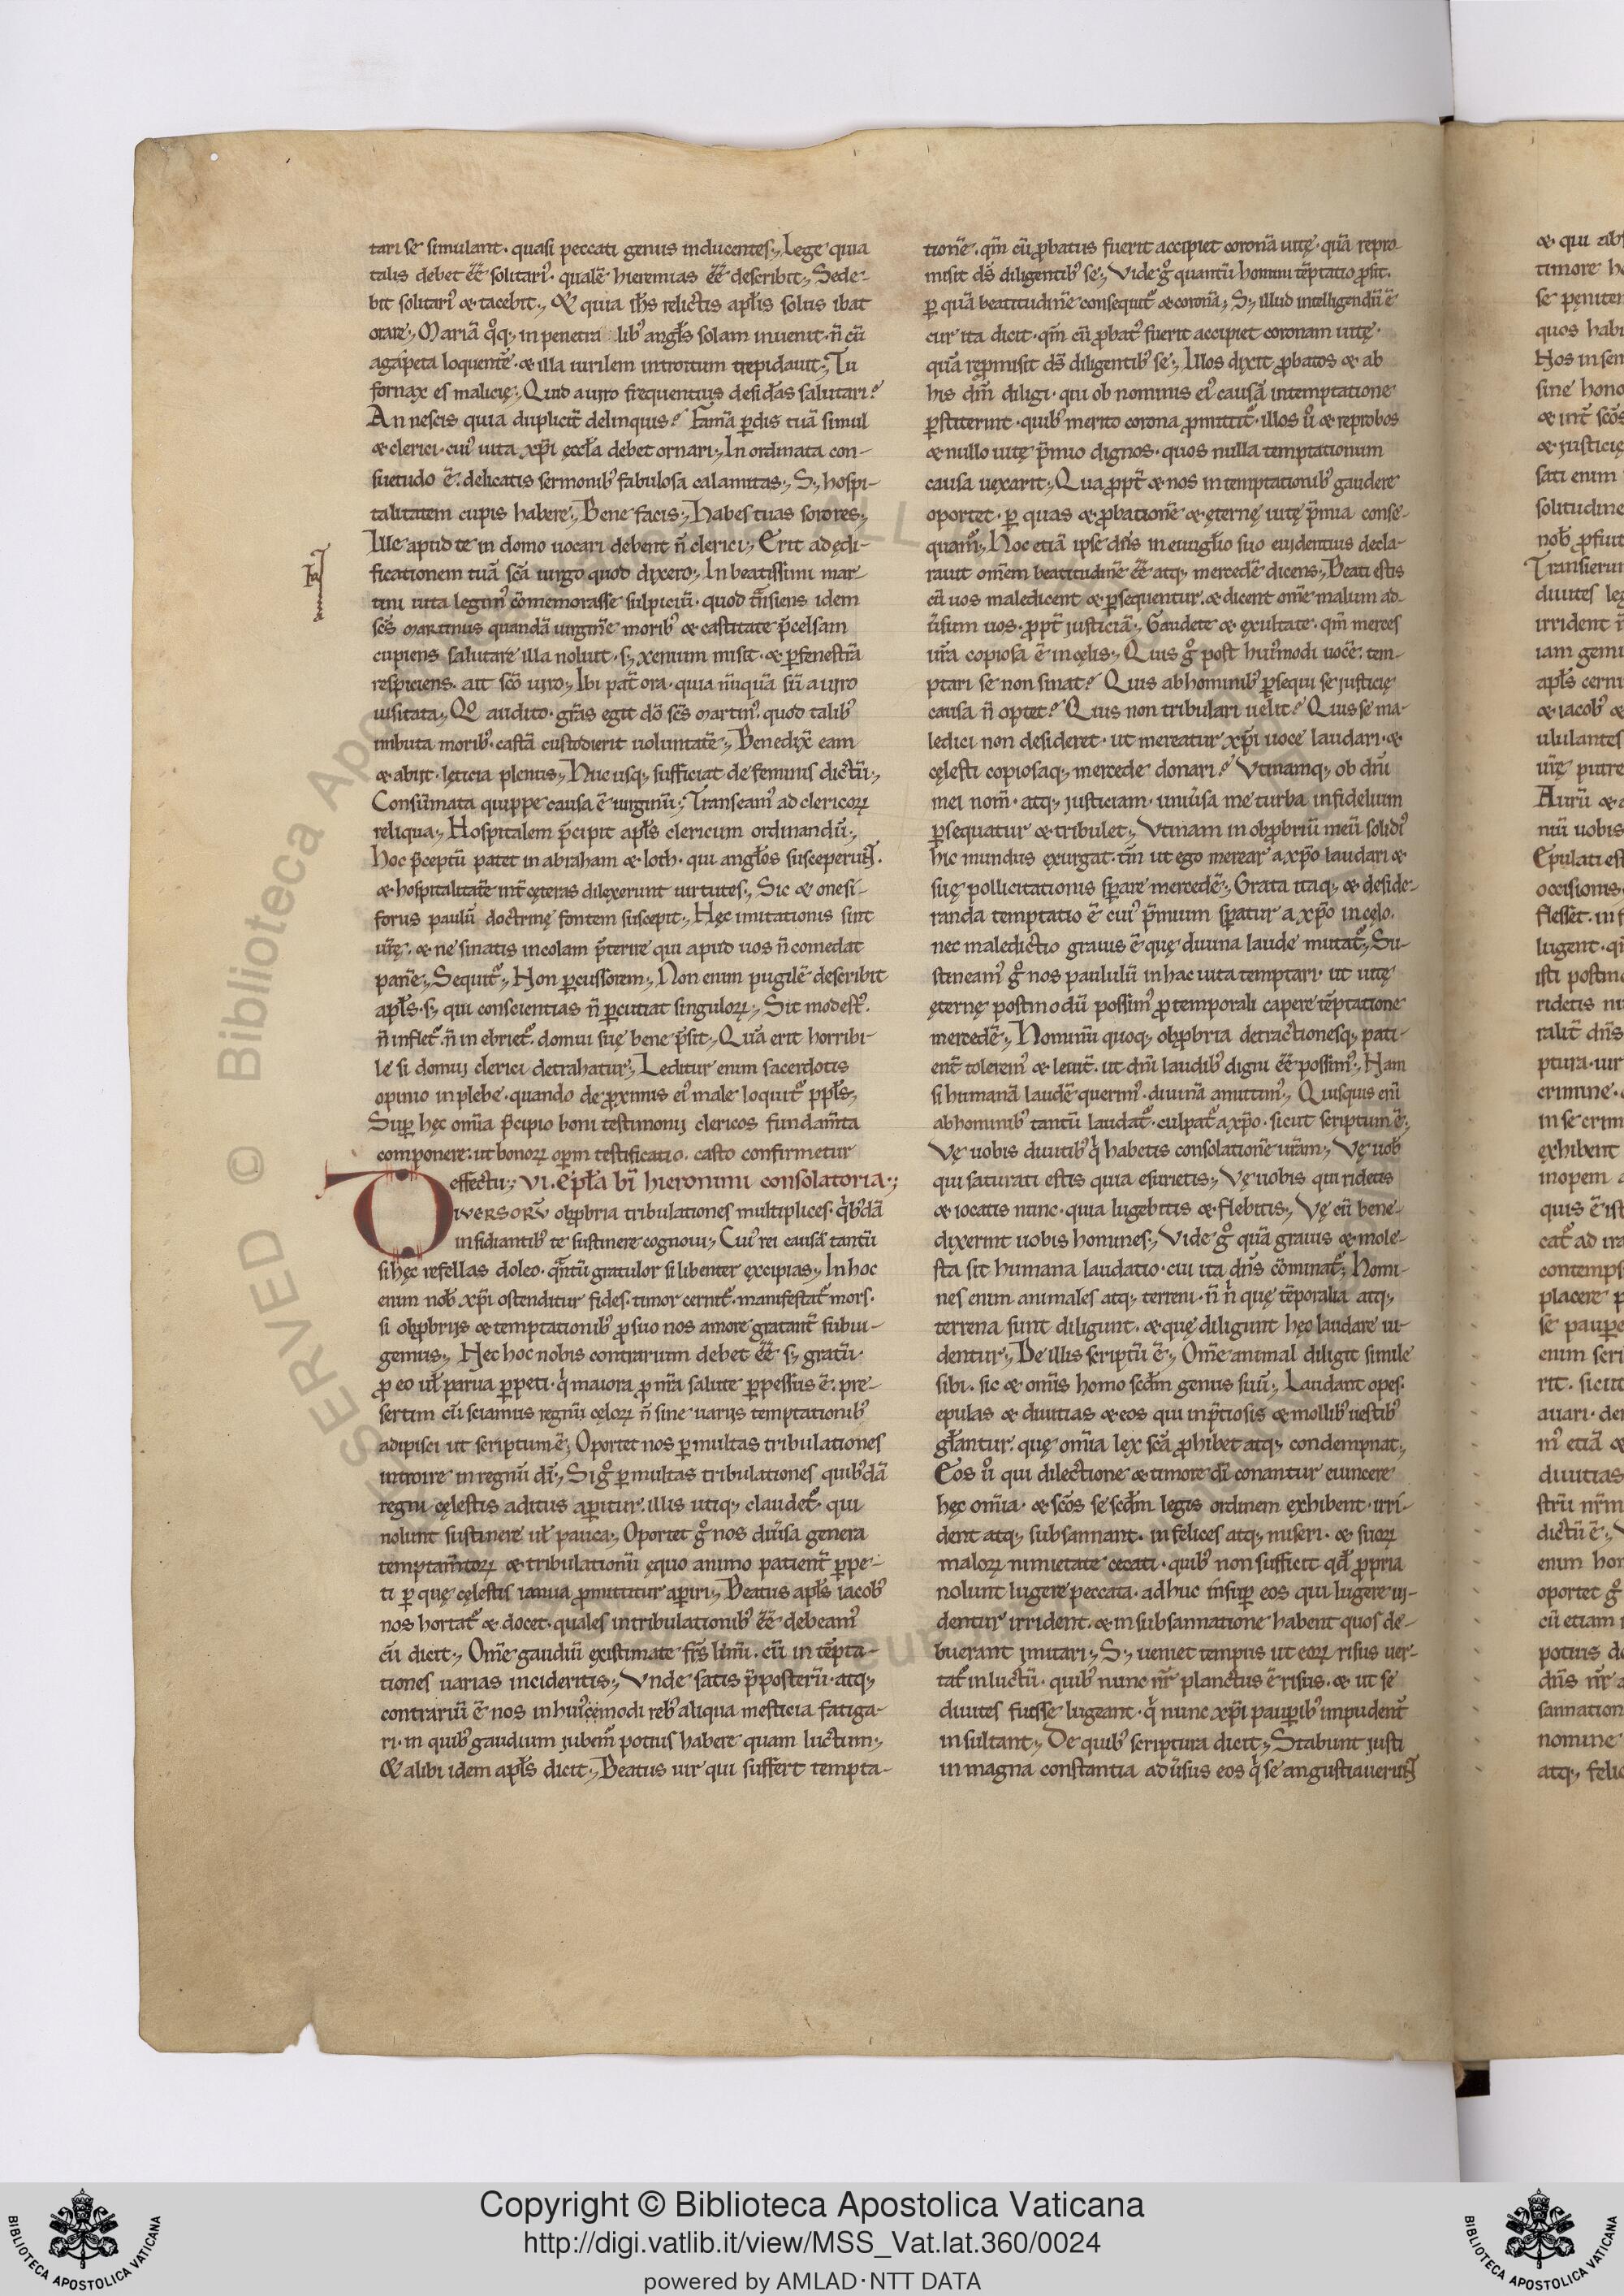 tari se simulant. quasi peccati genus inducentes; Lege quia
talis debet ēē solitari᾽. qualē hieremias ēē describit; Sede-
bit solitari᾽ & tacebit; Et quia ih̄s relictis apl̄is solus ibat
orare; Mariā q̊q; in penetralib᾽ angl̄s solam inuenit. n̄ cū
agapeta loquentē. & illa uirilem introitum trepidauit; Tu
fornax es malicię; Quid a uiro frequentius desid̄as salutari?
An nescis quia duplicit̄ delinquis? Famā ꝑdis tuā simul
& clerici. cui᾽ uita xp̄i ęccl̄a debet ornari; In ordinata con-
suetudo ē. delicatis sermonib᾽ fabulosa calamitas; S; hospi-
talitatem cupis habere; Bene facis; Habes tuas sorores;
Ille apud te in domo uocari debent n̄ clerici; Erit ad ędi-
ficationem tuā sc̄a uirgo quod dixero; In beatissimi mar-
tini uita legim᾽ cōmemorasse sulpiciū. quod t̄nsiens idem
sc̄s martinus quandā uirginē morib᾽ & castitate p̄celsam
cupiens salutare illa noluit. s; xenium misit. & ꝑ fenestrā
respiciens. ait sc̄o uiro; Ibi pat̄ ora. quia nūquā sū a uiro
uisitata; Qº audito. gr̄as egit dō sc̄s martin᾽. quod talib᾽
imbuta morib᾽. castā custodierit uoluntatē; Benedix̄ eam
& abijt. lęticia plenus; Huc usq; sufficiat de feminis dictū;
Consūmata quippe causa ē uirginū; Transeam᾽ ad clericoꝝ
reliqua; Hospitalem p̄cipit apl̄s clericum ordinandū;
Hoc p̄ceptū patet in abraham & loth. qui angl̄os susceperunt.
& hospitalitatē int̄ cęteras dilexerunt uirtutes; Sic & onesi-
forus paulū doctrinę fontem suscepit; Hęc imitationis sint
ur̄ę. & ne sinatis incolam p̄terire qui apud uos n̄ comedat
panē; Sequit᷑; Non ꝑcussorem; Non enim pugilē describit
apl̄s. s; qui conscientias n̄ ꝑcutiat singuloꝝ; Sit modest᾽.
n̄ inflet᷑. n̄ in ebriet᷑. domui suę bene p̄sit; Quā erit horribi-
le si domui clerici detrahatur; Leditur enim sacerdotis
opinio in plebe. quando de ꝓximis ei᾽ male loquit᷑ ppl̄s;
Suꝑ hęc om̄ia p̄cipio boni testimonij clericos fundam̄ta
componere: ut bonoꝝ oꝑm testificatio. casto confirmetur
effectu; VI. Epl̄a bī hieronimi consolatoria;
DIVERSORŪ obꝓbria tribulationes multiplices. q̇b᾽dā
insidiantib᾽ te sustinere cognoui; Cui᾽ rei causā tantū
si hęc refellas doleo. q̄ntū gratulor si libenter excipias; In hoc
enim nob̄ xp̄i ostenditur fides. timor cernit᷑. manifestat᷑ mors.
si obꝓbrijs & temptationib᾽ ꝓ suo nos amore gratant̄ subiu-
gemus; Nec hoc nobis contrarium debet ēē s; gratū.
ꝓ eo ul̄ parua ꝑpeti. q̇ maiora ꝓ nr̄a salute ꝑpessus ē. pre-
sertim cū sciamus regnū cęloꝝ n̄ sine uarijs temptationib᾽
adipisci ut scriptum ē; Oportet nos ꝑ multas tribulationes
introire in regnū dī; Si g̊ ꝑ multas tribulationes quib᾽dā
regni cęlestis aditus aꝑitur. illis utiq; claudet᷑. qui
nolunt sustinere ul̄ pauca; Oportet g̊ nos diūsa genera
temptam̄toꝝ & tribulationū ęquo animo patient̄ ꝑpe-
ti ꝑ quę cęlestis ianua ꝓmittitur aꝑiri; Beatus apl̄s iacob᾽
nos hortat᷑ & docet. quales in tribulationib᾽ ēē debeam᾽
cū dicit; Om̄e gaudiū existimate fr̄s m̄i. cū in tēpta-
tiones uarias incideritis; Vnde satis p̄posterū. atq;
contrariū ē nos in hui᾽cemodi reb᾽ aliqua mesticia fatiga-
ri. in quib᾽ gaudium jubem᷑ potius habere quam luctum;
Et alibi idem apl̄s dicit; Beatus uir qui suffert tempta-
tionē. qm̄ cū ꝓbatus fuerit accipiet coronā uitę. quā repro
misit ds̄ diligentib᾽ se; Vide g̊ quantū homini tēptatio ꝓsit.
ꝑ quā beatitudinē consequit᷑ & coronā; S; illud intelligendū ē
cur ita dicit. qm̄ cū ꝓbat᾽ fuerit accipiet coronam uitę.
quā reꝓmisit ds̄ diligentib᾽ se; Illos dixit ꝓbatos & ab
his dm̄ diligi. qui ob nominis ei᾽ causā in temptatione
ꝑstiterint. quib᾽ merito corona ꝓmittit᷑. illos ů & reprobos
& nullo uitę p̄mio dignos. quos nulla temptationum
causa uexarit; Qua ꝓpt̄ & nos in temptationib᾽ gaudere
oportet. ꝑ quas & ꝓbationē & ęternę uitę p̄mia conse-
quam᷑; Hoc etiā ipse dn̄s in euuglio suo euidentius decla-
rauit om̄em beatitudinē ēē atq; mercedē dicens; Beati estis
cū uos maledicent & ꝑsequentur. & dicent om̄e malum ad-
ūsum uos. ꝓpt̄ justiciā; Gaudete & exultate. qm̄ merces
ur̄a copiosa ē in cęlis; Quis g̊ post hui᾽modi uocē. tem-
ptari se non sinat? Quis ab hominib᾽ ꝑsequi se justicię
causa n̄ optet? Quis non tribulari uelit? Quis se ma-
ledici non desideret. ut mereatur xp̄i uoce laudari. &
cęlesti copiosaq; mercede donari? Vtinamq; ob dn̄i
mei nom̄. atq; justiciam. uniūsa me turba infidelium
ꝑsequatur & tribulet; Vtinam in obꝓbriū meū solid᾽
hic mundus exurgat. tm̄ ut ego merear a xp̄o laudari &
suę pollicitationis sꝑare mercedē; Grata itaq; & deside-
randa temptatio ē cui᾽ p̄mium sꝑatur a xp̄o in cęlo.
nec maledictio grauis ē quę diuina laude mutat᷑; Su-
stineam᾽ g̊ nos paululū in hac uita temptari. ut uitę
ęternę postmodū possim᾽ ꝓ temporali capere tēptatione
mercedē; Hominū quoq; obꝓbria detractionesq; pati-
ent̄ tolerem᾽ & leuit̄. ut dn̄i laudib᾽ digni ēē possim᾽; Nam
si humanā laudē querim᾽. diuinā amittim᾽; Quisquis eni
ab hominib᾽ tantū laudat᷑. culpat᷑ a xp̄o. sicut scriptum ē;
Vę uobis diuitib᾽ q̇ habetis consolationē ur̄am; Vę uob̄
qui saturati estis quia esurietis; Vę uobis qui ridetis
& iocatis nunc. quia lugebitis & flebitis; Vę cū bene-
dixerint uobis homines; Vide g̊ quā grauis & mole-
sta sit humana laudatio. cui ita dn̄s cōminat᷑; Homi-
nes enim animales atq; terreni. n̄ n̄ quę tēporalia atq;
terrena sunt diligunt. & quę diligunt hęc laudare ui-
dentur; De illis scriptū ē; Om̄e animal diligit simile
sibi. sic & om̄is homo scdm̄ genus suū; Laudant opes.
epulas & diuitias & eos qui in p̄tiosis & mollib᾽ uestib᾽
gl̄antur. quę om̄ia lex sc̄a ꝓhibet atq; condempnat;
Eos ů qui dilectione & timore dī conantur euincere
hęc om̄ia. & sc̄os se scdm̄ legis ordinem exhibent. irri-
dent atq; subsannant. in felices atq; miseri. & suoꝝ
maloꝝ nimietate cecati. quib᾽ non sufficit qd̄ ꝓpria
nolunt lugere peccata. ad huc insuꝑ eos qui lugere ui-
dentur irrident. & in subsannatione habent quos de-
buerant imitari; S; ueniet tempus ut eoꝝ risus uer-
tat᷑ in luctū. quib᾽ nunc nr̄ planctus ē risus. & ut se
diuites fuisse lugeant. q̇ nunc xp̄i pauꝑib᾽ impudent̄
insultant; De quib᾽ scriptura dicit; Stabunt justi
in magna constantia adūsus eos q̇ se angustiauerunt
Copyright © Biblioteca Apostolica Vaticana
http://digi.vatlib.it/view/MSS_Vat.lat.360/0024
powered by AMLAD·NTT DATA
BIBLIOTECA APOSTOLICA VATICANA
BIBLIOTECA APOSTOLICA VATICANA